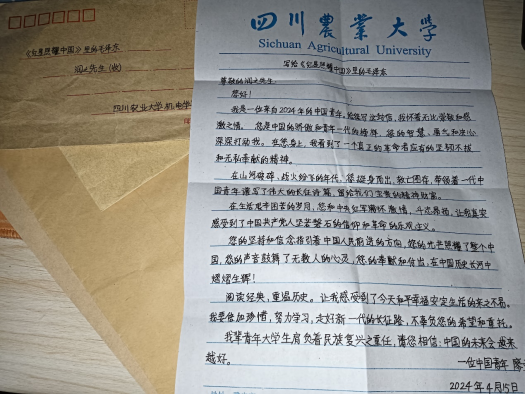 《红星照耀中国》里的毛泽东
润之先生(收)
四川农业大学机电学
四川農業大學
Sichuan Agricultural University
写给《红星照耀中国》里的毛泽东
尊敬的润之先生
您好!
我是一位来自2024年的中国青年,给您写这封信,我怀着无比崇敬和感
激之情。您是中国的骄傲和青年一代的榜样,您的智慧、勇气和决心
深深打动我。在您身上,我看到了一个真正的革命者应有的坚韧不拔
和无私奉献的精神。
在山河破碎,战火纷飞的年代,您挺身而出,救亡图存,带领着一代中
国青年谱写了伟大的长征诗篇,留给我们宝贵的精神财富。
在生活艰辛困苦的岁月,您和中央红军满怀激情,斗志昂扬,让我真实
感受到了中国共产党人坚若磐石的信仰和革命的乐观主义。
您的坚持和信念指引着中国人民前进的方向,您的光芒照耀了整个中
国,您的声音鼓舞了无数人的心灵,您的奉献和付出,在中国历史长河中
熠熠生辉!
阅读经典,重温历史。让我感受到了今天和平幸福安定生活的来之不易。
我要倍加珍惜,努力学习,走好新一代的长征路,不辜负您的希望和重托。
我辈青年大学生肩负着民族复兴之重任,请您相信,中国的未来会越来
越好。
一位中国青年 廖
2024年4月15日